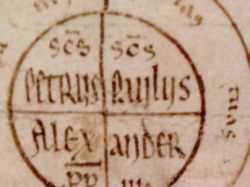 scs scs
PETRUS PAULUS
ALEX ANDER
PP III